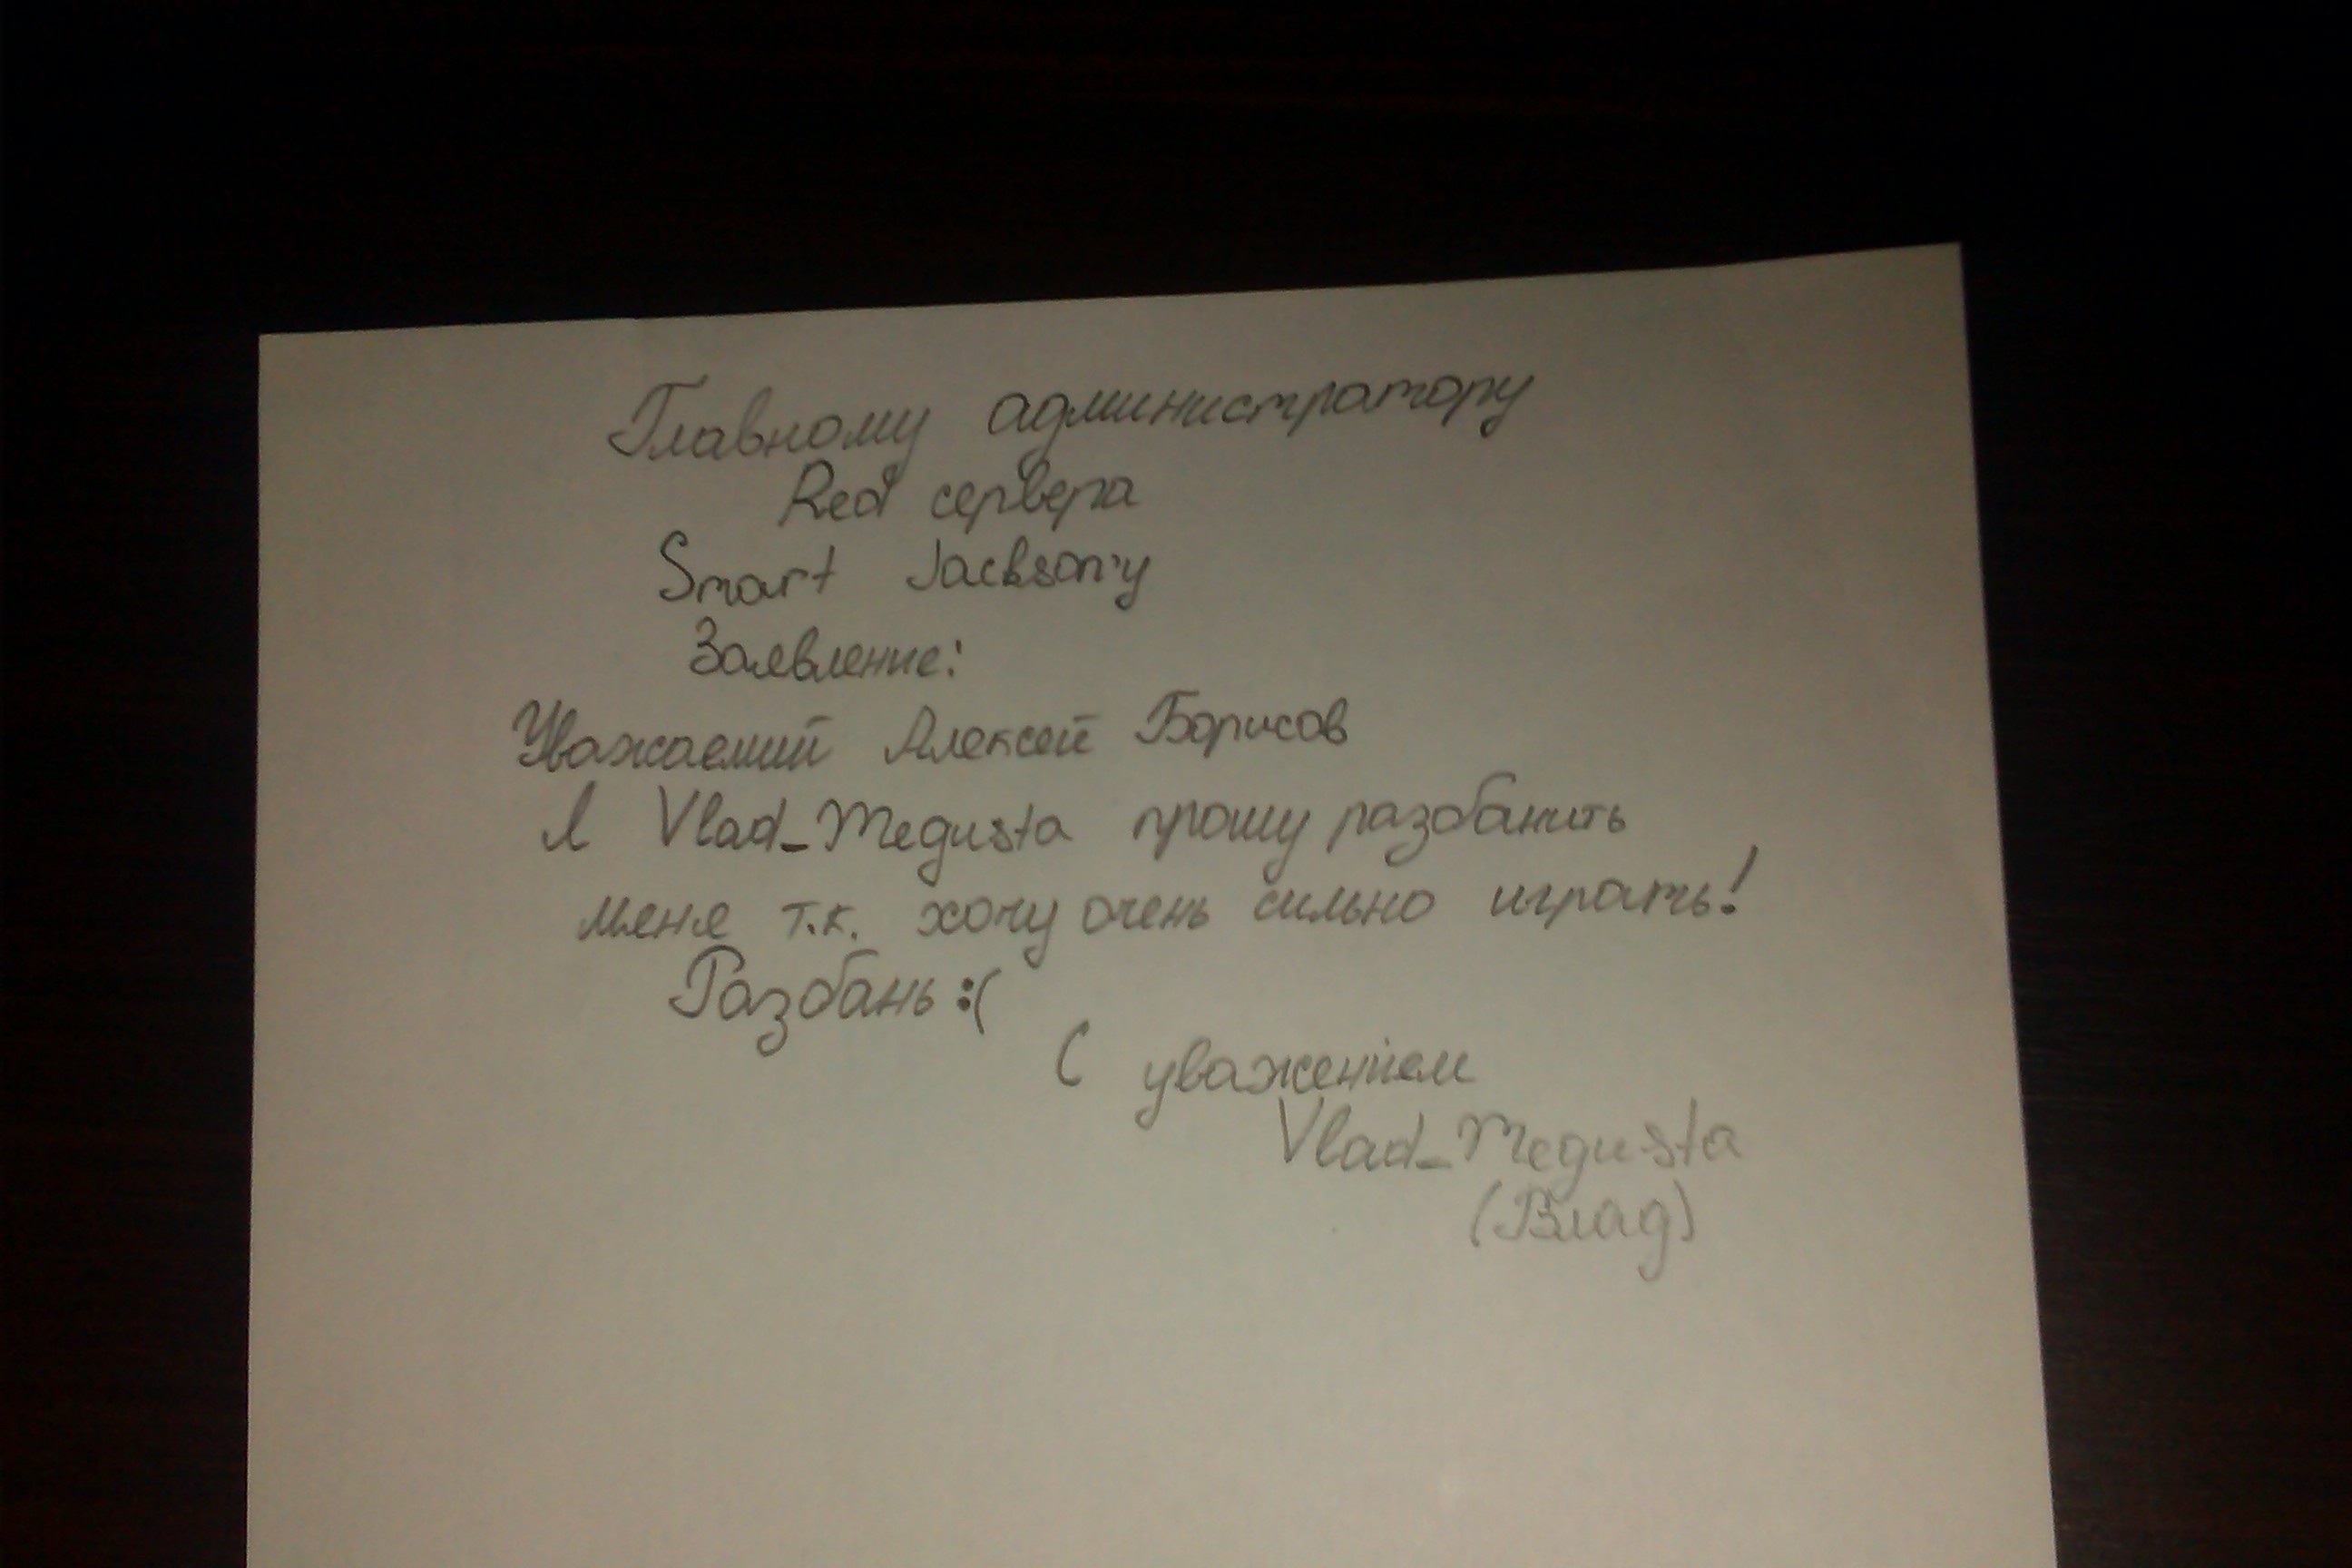 Главному администратору
Red сервера
Smart Jackson'у
Заявление:
Уважаемий Алексей Борисов
Я Vlad_Megusta прошу разбанить
меня т.к. хочу очень сильно играть!
Разбань :(
С уваженіем
Vlad_Megusta
(Влад)